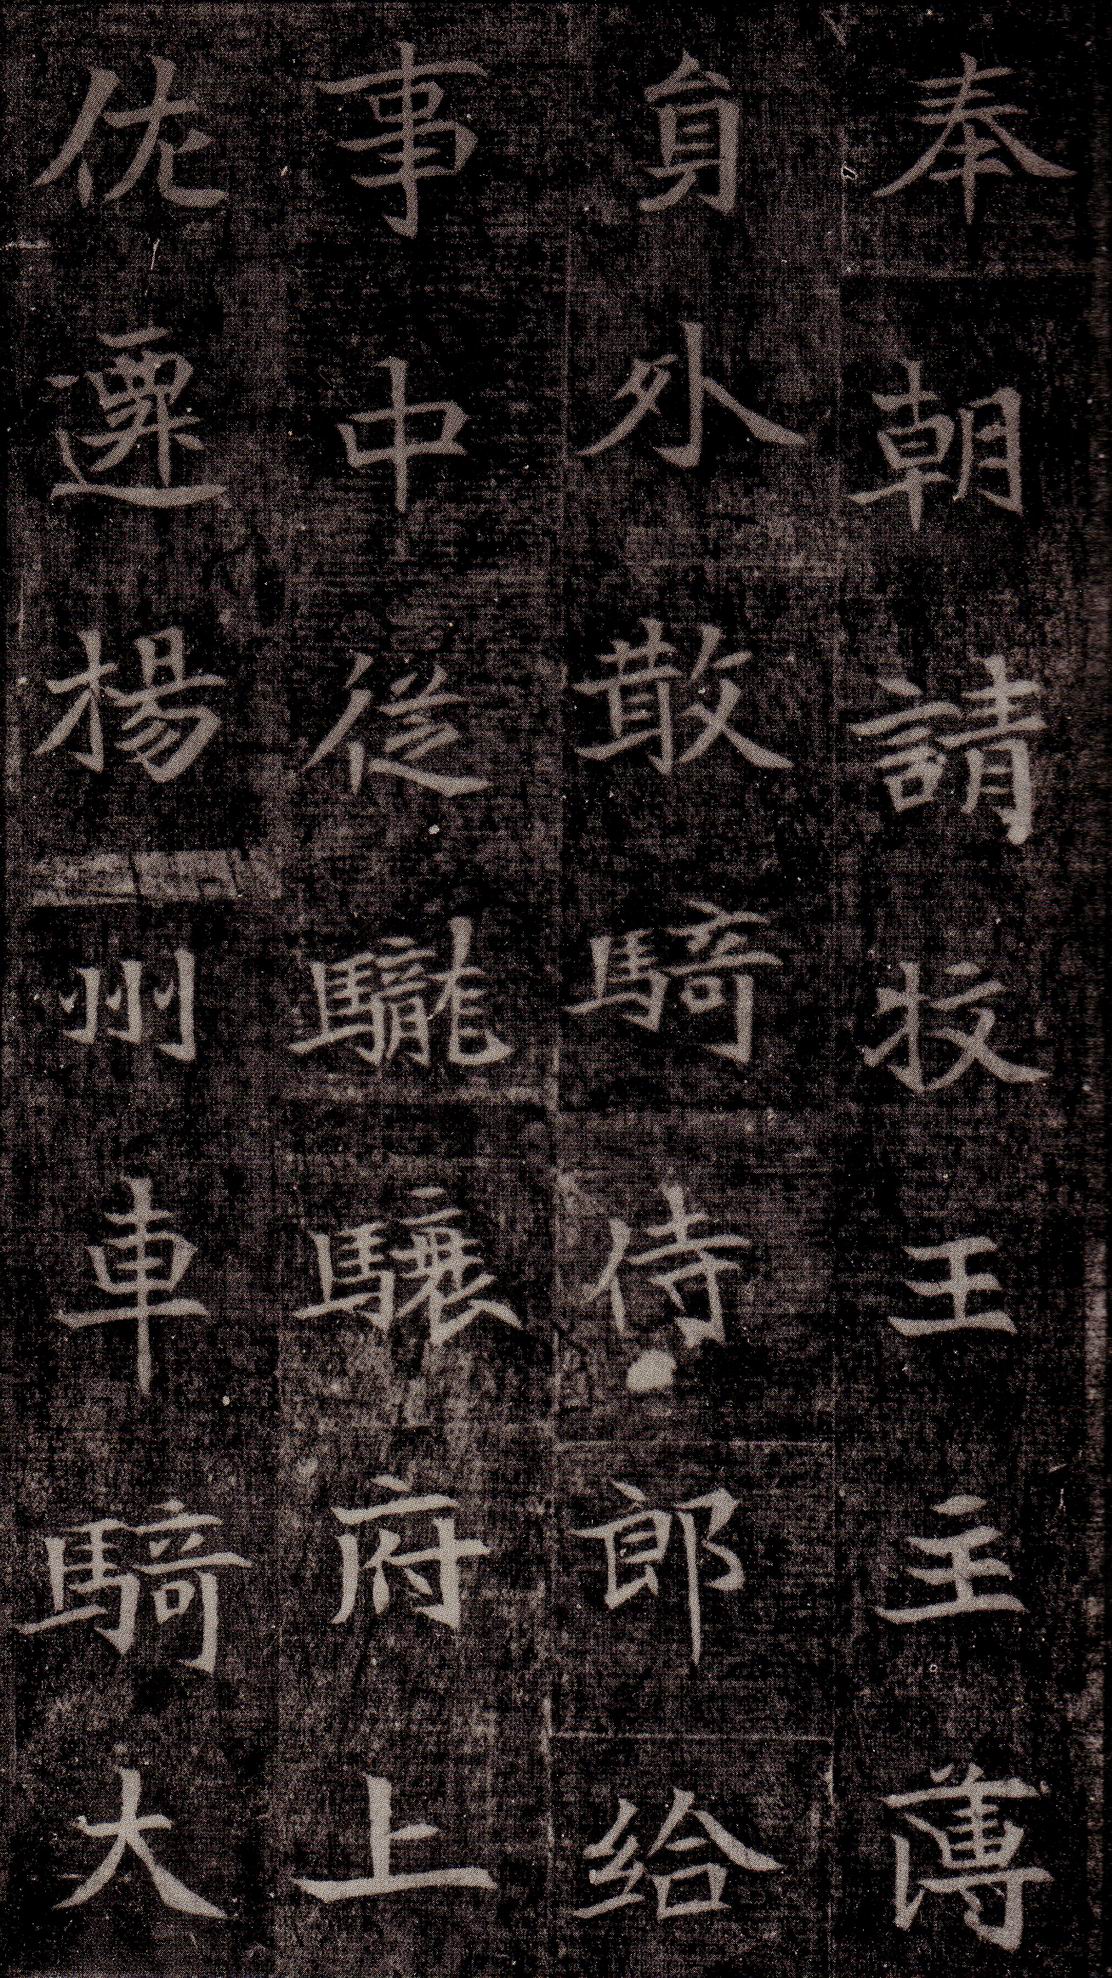 奉朝請挍王主薄
員外散騎侍郎給
事中從驤驤府上
佐遷揚州車騎大